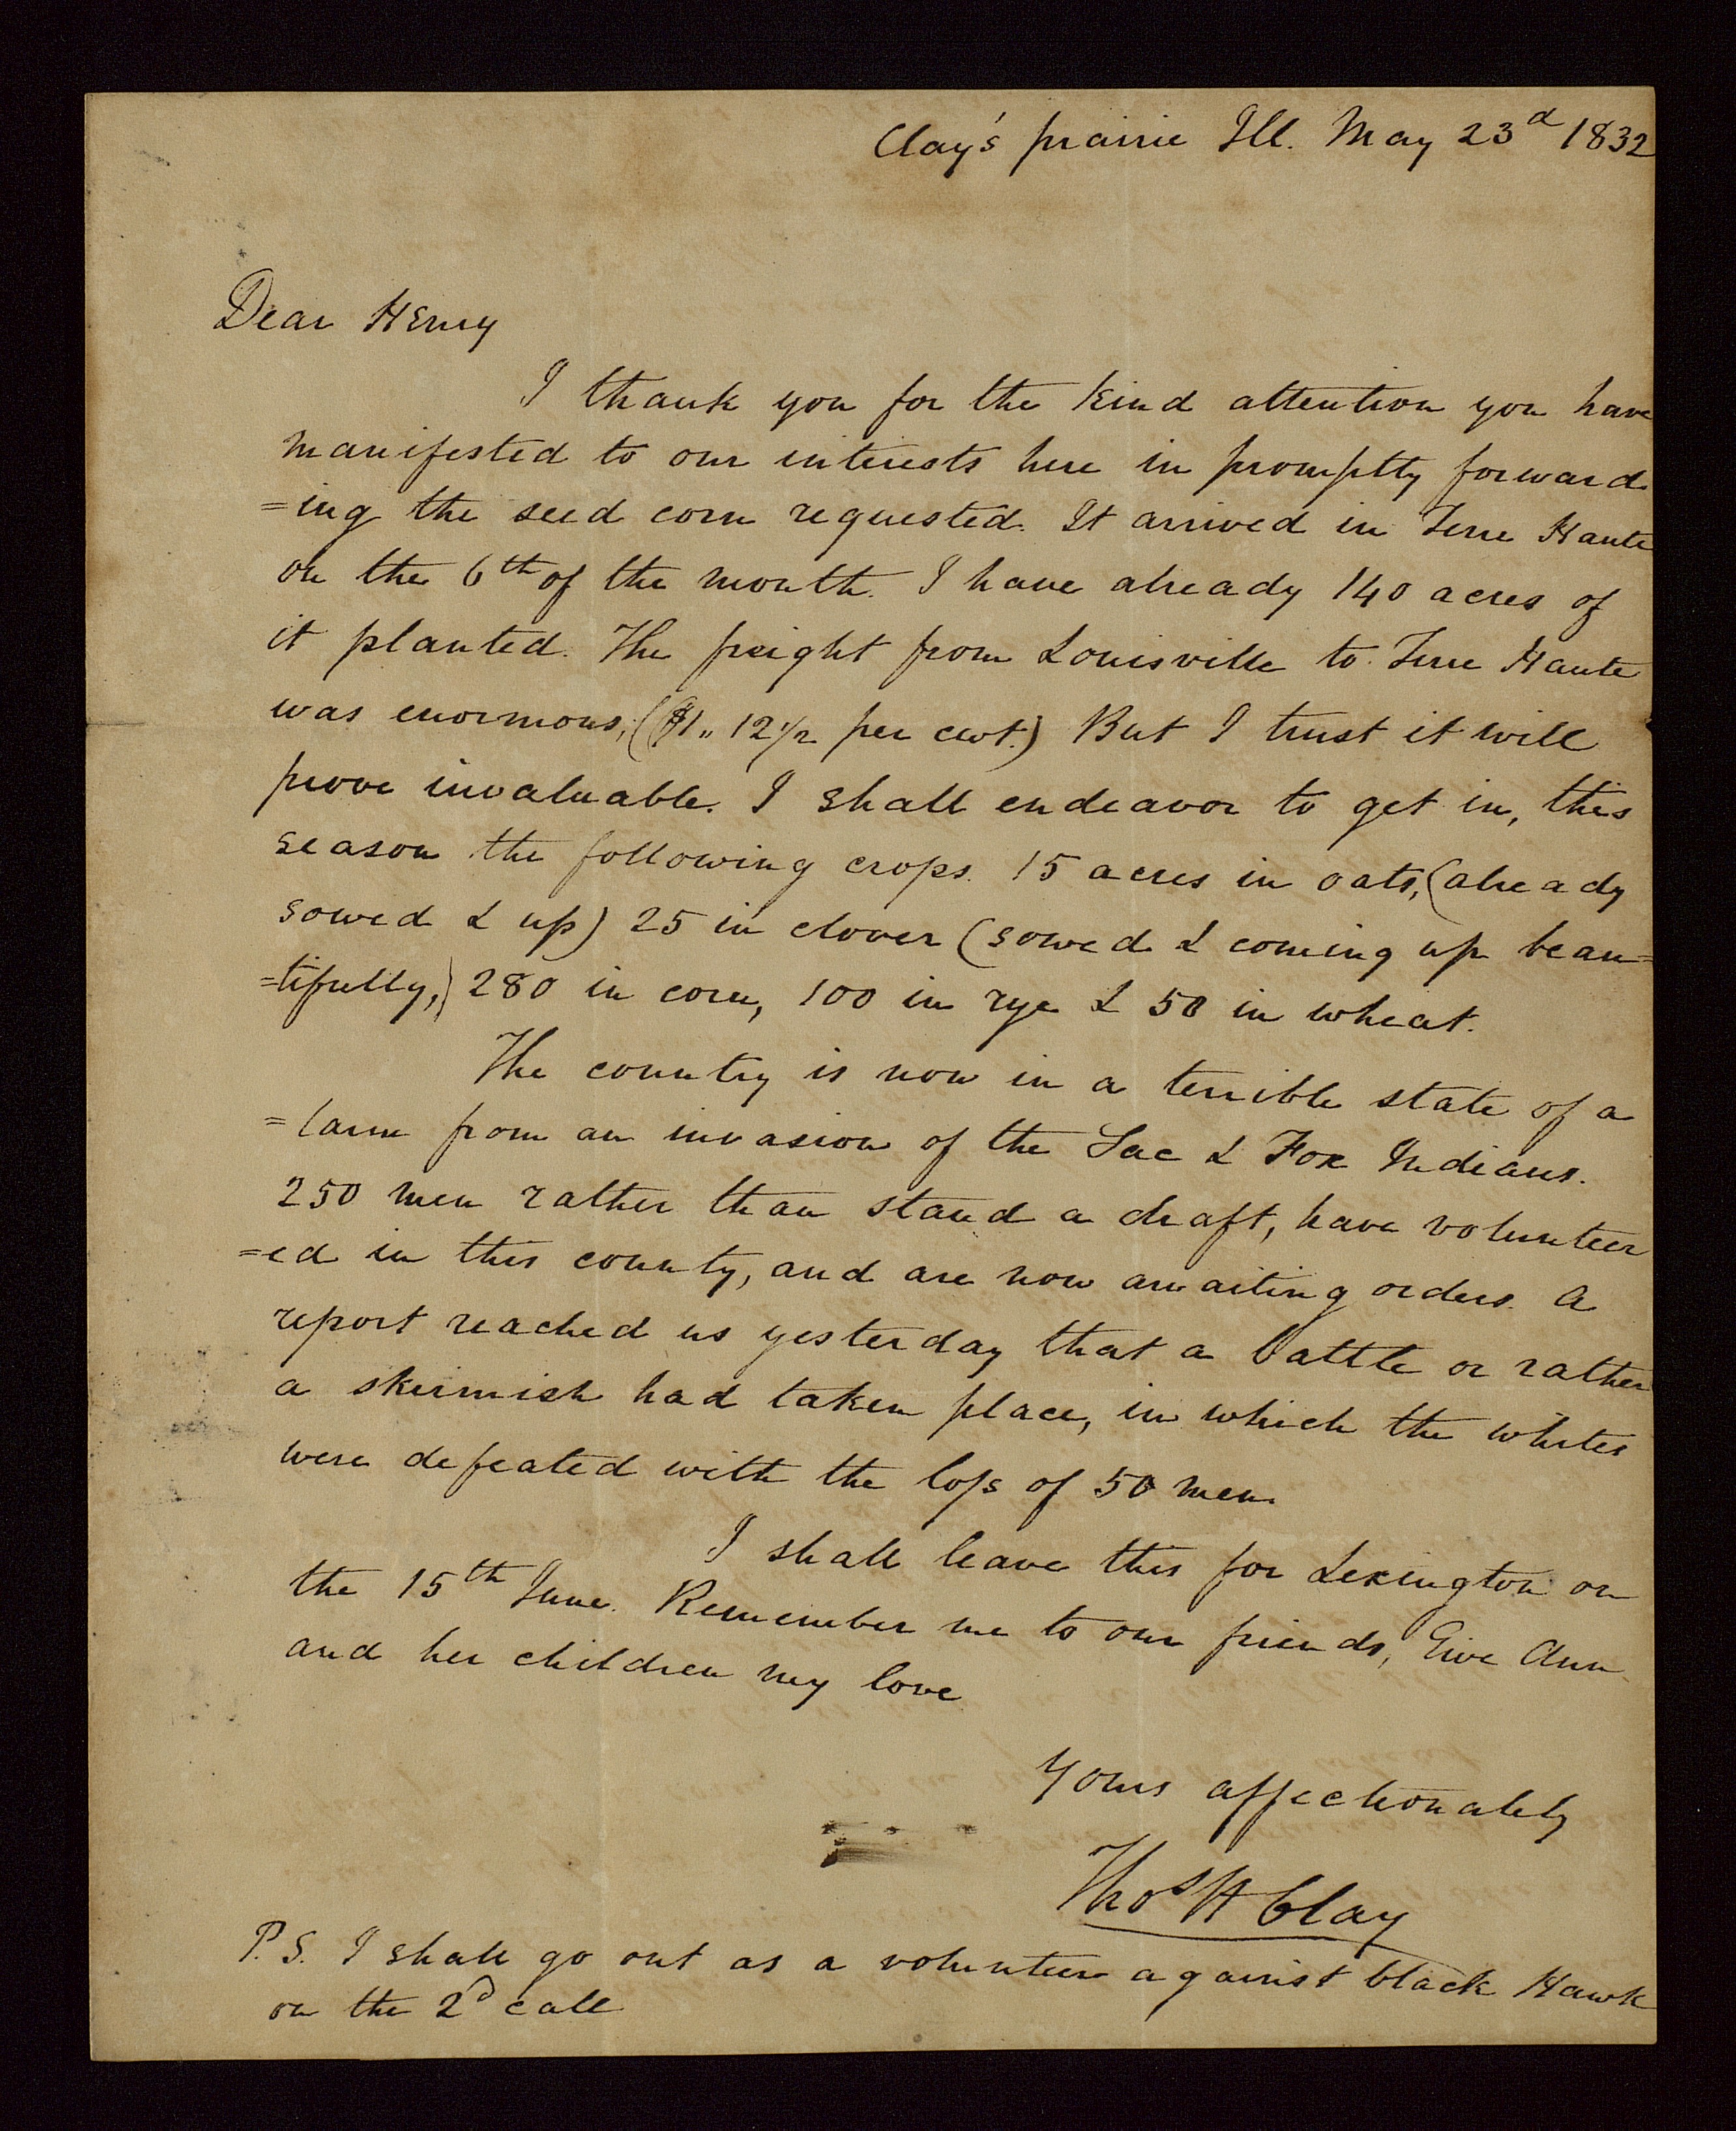 Clay's prairie Ill. May 23d 1832
Dear Henry
I thank you for the kind attention you have
manifested to our interests here in promptly forward
=ing the seed corn requested. It arrived in Terre Haute
on the 6th of the month. I have already 140 acres of
it planted. The freight from Louisville to Terre Haute
was enormous, ($1„ 12 1/2 per cwt.) But I trust it will
prove invaluable. I shall endeavor to get in, this
season the following crops. 15 acres in oats, (already
sowed & up) 25 in clover (sowed & coming up beau=
=tifully,) 280 in corn, 100 in rye & 50 in wheat.
The country is now in a terrible state of a
=larm from an invasion of the Sac & Fox Indians.
250 men rather than stand a draft, have volunteer
=ed in this county, and are now awaiting orders. A
report reached us yesterday that a battle or rather
a skirmish had taken place, in which the whites
were defeated with the loss of 50 men.
I shall leave this for Lexington on
the 15th June. Remember me to our friends, Give Ann
and her children my love
Yours affectionately
Thos H Clay
P.S. I shall go out as a volunteer against black Hawk
on the 2d call